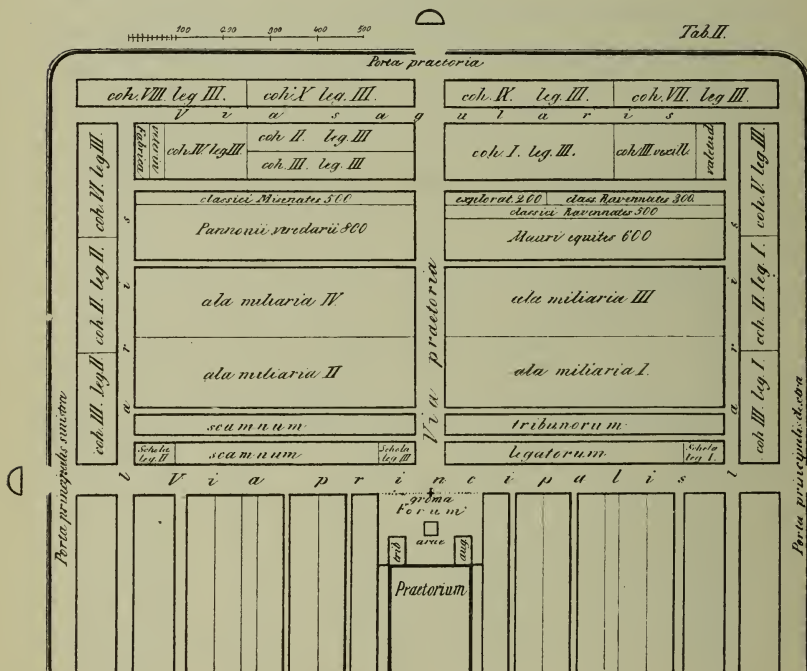 100 200 300 400 500
Tab. II.
Porta praetoria
coh. VIII. leg III. coh. X leg. III. coh. IX. leg. III. coh. VII. leg III.
Via sagularis
coh. VI. leg III.
Fabrica
veterin
coh. IV. leg III
coh II. leg III
coh. III. leg III
coh. I. leg. III.
coh. III. vexill
valetud
coh. V. leg III.
classici Misenates 500
Pannonii veredarii 800
explorat. 200 class. Ravennates 300.
classici Ravennates 500
Mauri equites 600
coh. II. leg II.
ala miliaria IV
ala miliaria III
coh. II leg I.
Via praetoria
coh. III. leg II.
ala miliaria II
ala miliaria I.
coh III leg I.
scamnum tribunorum
Schola leg. II scamnum Schola leg III legatorum Schola leg I.
Via principalis
Porta principalis sinistra
Porta principalis dextra
groma
Forum
arae
trib
aug.
Praetorium